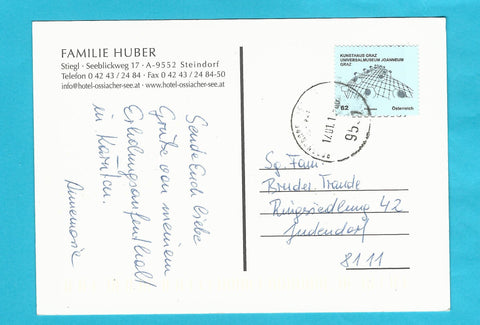 FAMILIE HUBER
Stiegl · Seeblickweg 17 · A-9552 Steindorf
Telefon 0 42 43 / 24 84 · Fax 0 42 43 / 24 84-50
info@hotel-ossiacher-see.at · www.hotel-ossiacher-see.at
Sende Euch liebe
Grüße von meinem
Erholungsaufenthalt
in Kärnten.
Annemarie
KUNSTHAUS GRAZ
UNIVERSALMUSEUM JOANNEUM
GRAZ
62
Österreich
Sg. Fam.
Bruder Traude
Ringsiedlung 42
Judendorf
8111